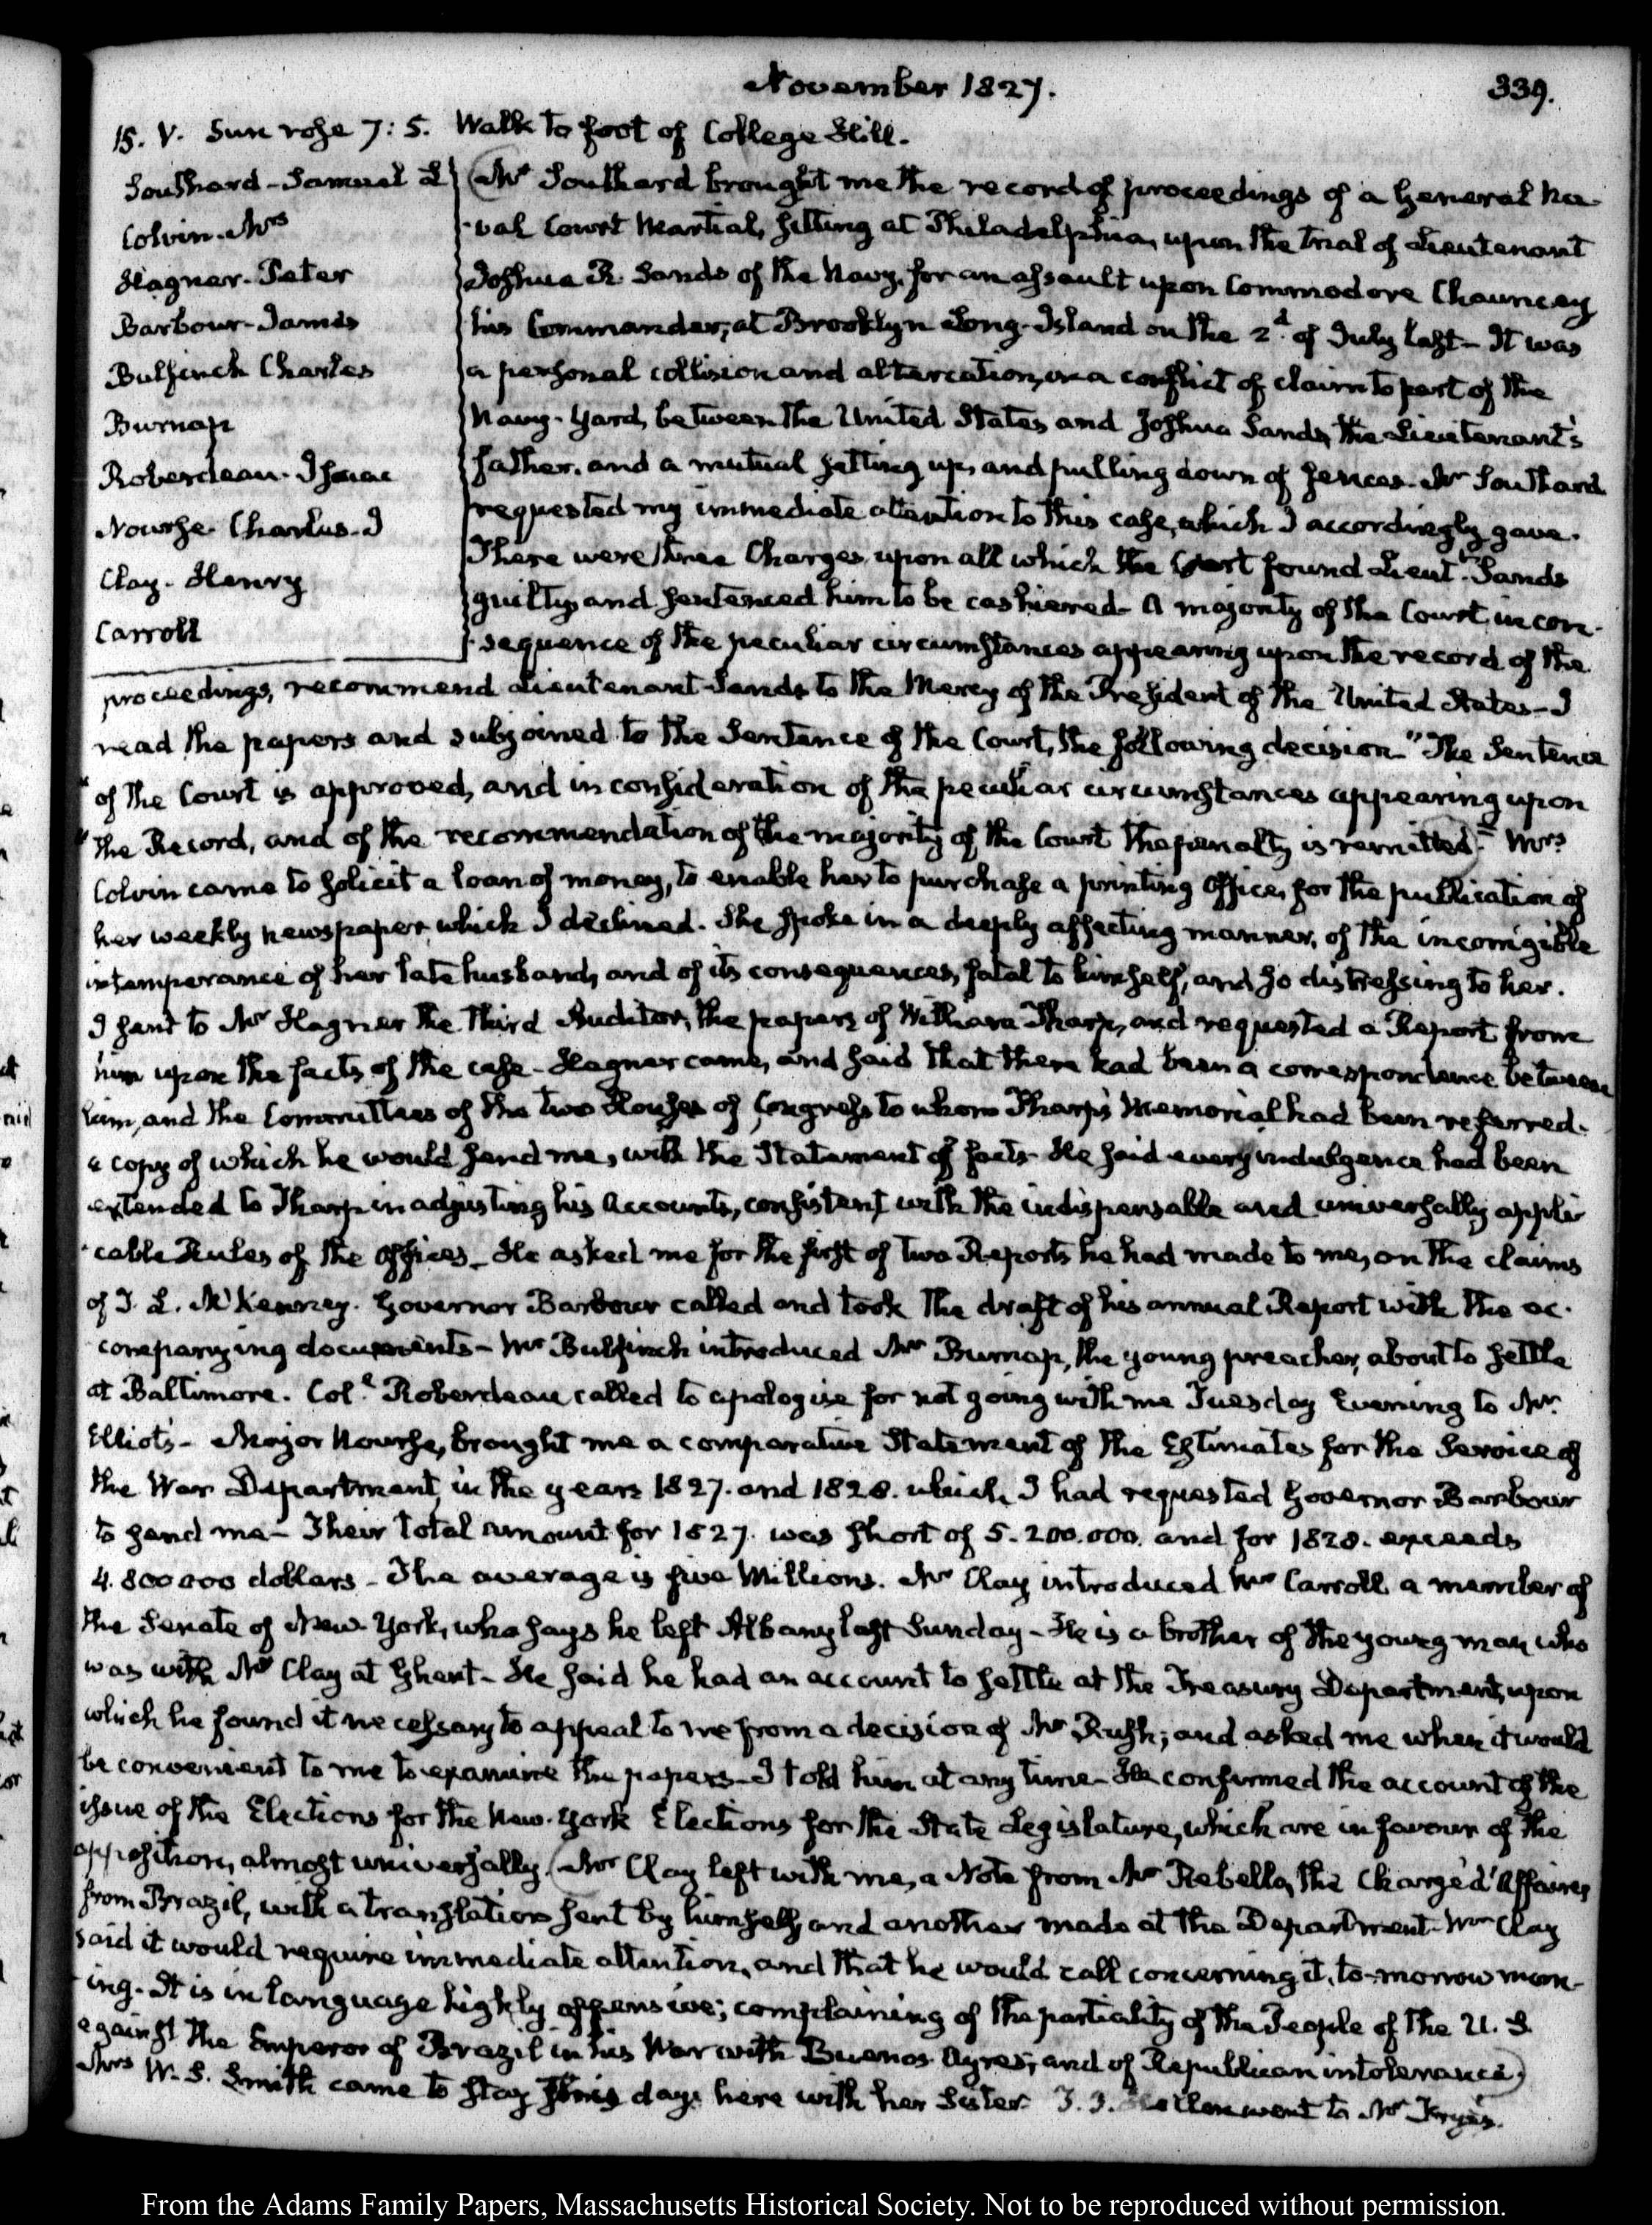 November 1827.
339.
15. V. Sun rose 7: 5. Walk to foot of College Hill.
Southard-Samuel L
Colvin. Mrs
Hagner. Peter
Barbour-James
Bulfinch Charles
Burnap
Roberdeau. Isaac
Nourse Charles. J
Clay. Henry
Carroll
Mr Southard brought me the record of proceedings of a General Na-
-val Court Martial, sitting at Philadelphia, upon the trial of Lieutenant
Joshua R. Sands of the Navy, for an assault upon Commodore Chauncey
his Commander, at Brooklyn Long-Island on the 2d. of July last- It was
a personal collision and altercation, on a conflict of claim to part of the
Navy-Yard, between the United States and Joshua Sands, the Lieutenant's
father. and a mutual setting up, and pulling down of fences. Mr Southard
requested my immediate attention to this case, which I accordingly gave.
There were three Charges, upon all which the Court found Lieutt. Sands
guilty, and sentenced him to be cashiered- A majority of the Court, in con-
-sequence of the peculiar circumstances appearing upon the record of the
proceedings, recommend Lieutenant Sands to the Mercy of the President of the United States- I
read the papers and subjoined to the Sentence of the Court, the following decision- "The Sentence
"of the Court is approved, and in consideration of the peculiar circumstances appearing upon
"the Record, and of the recommendation of the majority of the Court the penalty is remitted." Mrs
Colvin came to solicit a loan of money, to enable her to purchase a printing Office, for the publication of
her weekly newspaper, which I declined. She spoke in a deeply affecting manner, of the incorrigible
intemperance of her late husband, and of its consequences, fatal to himself, and so distressing to her.
I sent to Mr Hagner the Third Auditor, the papers of William Tharp, and requested a Report from
him upon the facts of the case- Hagner came, and said that there had been a correspondence between
him, and the Committees of the two Houses of Congress to whom Tharp's Memorial had been referred.
a copy of which he would send me, with the Statement of facts- He said every indulgence had been
extended to Tharp in adjusting his Accounts, consistent with the indispensable and universally appli-
-cable Rules of the Offices- He asked me for the first of two Reports he had made to me, on the claims
of T. L. McKenney. Governor Barbour called and took the draft of his annual Report with the ac-
-companying documents- Mr Bulfinch introduced Mr Burnap, the young preacher, about to settle
at Baltimore. Coll. Roberdeau called to apologise for not going with me Tuesday Evening to Mr.
Elliot's- Major Nourse, brought me a comparative Statement of the Estimates for the Service of
the War Department, in the years 1827. and 1828. which, I had requested Governor Barbour
to send me- Their total amount for 1827. was short of 5.200.000. and for 1828. exceeds
4.800 000 dollars- The average is five Millions. Mr Clay introduced Mr Carroll a member of
the Senate of New-York, who says he left Albany last Sunday- He is a brother of the young man who
was with Mr Clay at Ghent- He said he had an account to settle at the Treasury Department, upon
which he found it necessary to appeal to me from a decision of Mr Rush; and asked me when it would
be convenient to me to examine the papers- I told him at any time- He confirmed the account of the
issue of the Elections for the New-York Elections for the State Legislature, which are in favour of the
opposition, almost universally. (Mr Clay left with me, a Note from Mr Rebello, the Chargé d'Affaires
from Brazil, with a translation sent by himself, and another made at the Department- Mr Clay
said it would require immediate attention, and that he would call concerning it, to-morrow morn-
-ing- It is in language highly offensive; complaining of the partiality of the People of the U. S.
against the Emperor of Brazil in his War with Buenos Ayres; and of Republican intolerance.)
Mrs W. S. Smith came to stay some days here with her Sister. went to Mr
From the Adams Family Papers, Massachusetts Historical Society. Not to be reproduced without permission.